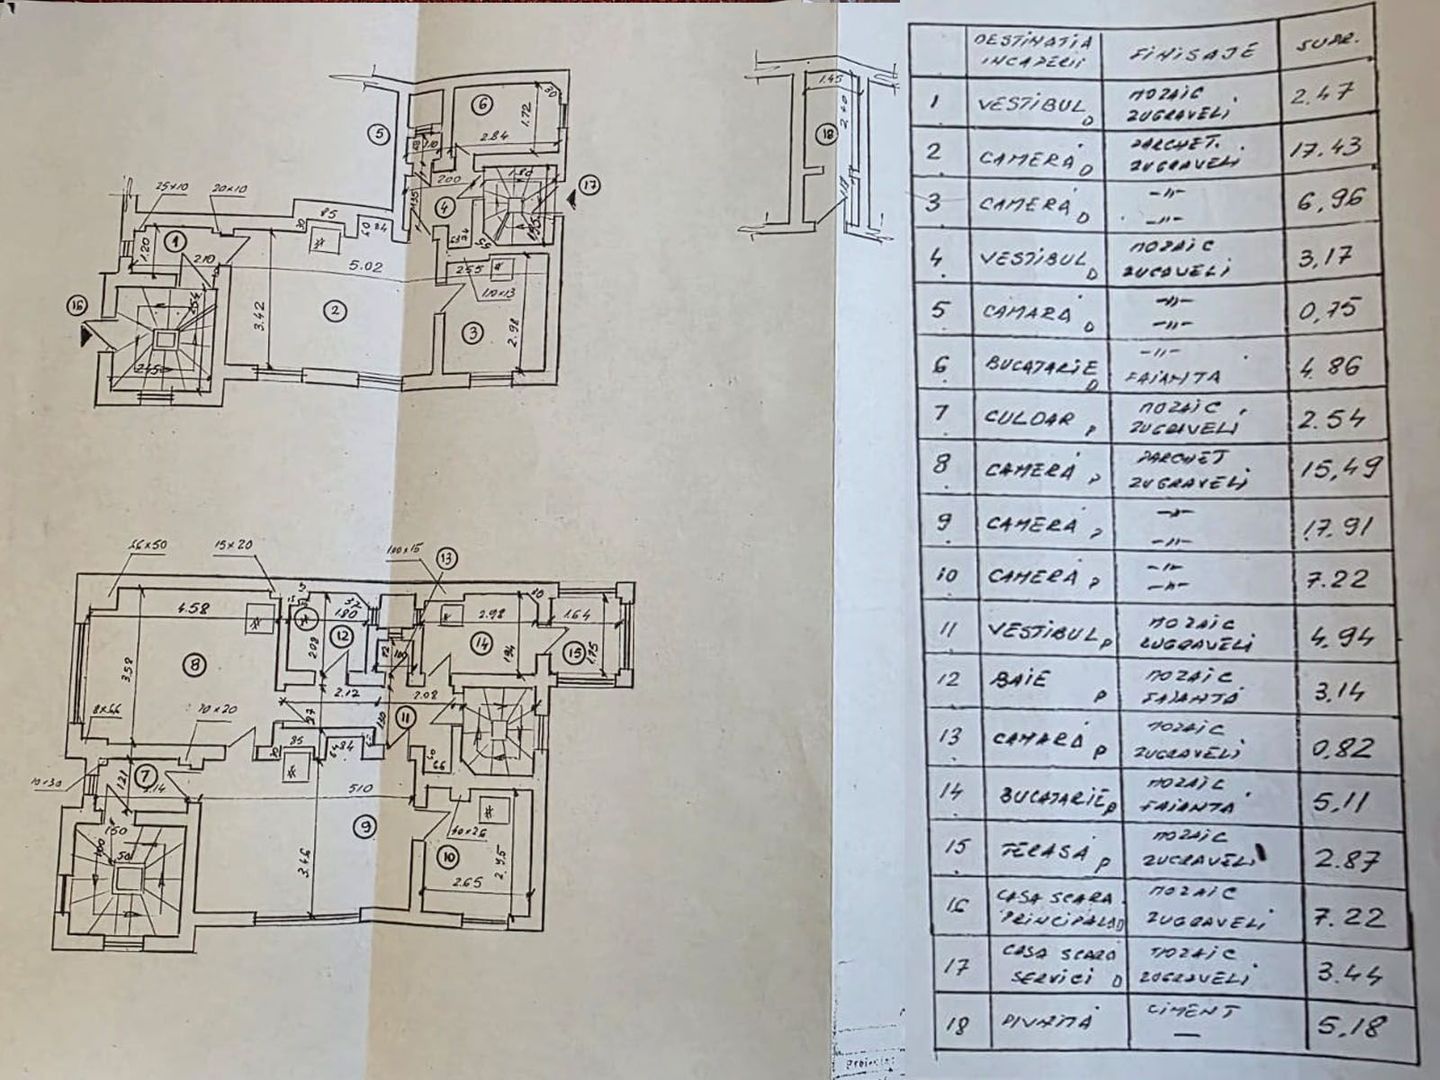 5
6
30
1.72
2.84
1.80
17
200
4
1.35
25×10
20×10
85
30
60
84
1
1.20
210
5.02
255
110×13
16
3.42
2
3
2.98
245
1.45
2.40
18
66×50
15×20
100×15
13
4.58
1.80
2.98
1.64
12
2.08
14
1.94
15
1.75
8
3.58
2.12
2.08
97
11
8×66
70×20
85
84
7
1.21
10×30
510
66
150
9
3.46
40×26
10
2.95
2.65
DESTINATIA INCAPERII
FINISAJE
SUPR.
1 VESTIBUL D MOZAIC ZUGRAVELI 2.47
2 CAMERĂ D PARCHET ZUGRAVELI 17.43
3 CAMERĂ D -"- -"- 6,96
4 VESTIBUL D MOZAIC ZUGRAVELI 3,17
5 CAMARĂ D -"- -"- 0,75
6 BUCATARIE D -"- FAIANTA 4.86
7 CULOAR P MOZAIC ZUGRAVELI 2.54
8 CAMERĂ P PARCHET ZUGRAVELI 15,49
9 CAMERĂ P -"- -"- 17.91
10 CAMERĂ P -"- -"- 7.22
11 VESTIBUL P MOZAIC ZUGRAVELI 4.94
12 BAIE P MOZAIC FAIANTĂ 3,14
13 CAMARĂ P MOZAIC ZUGRAVELI 0,82
14 BUCATARIE P MOZAIC FAIANTĂ 5,11
15 TERASĂ P MOZAIC ZUGRAVELI 2.87
16 CASA SCARA PRINCIPALA D MOZAIC ZUGRAVELI 7.22
17 CASA SCARĂ SERVICI D MOZAIC ZUGRAVELI 3.44
18 PIVNITĂ CIMENT — 5,18